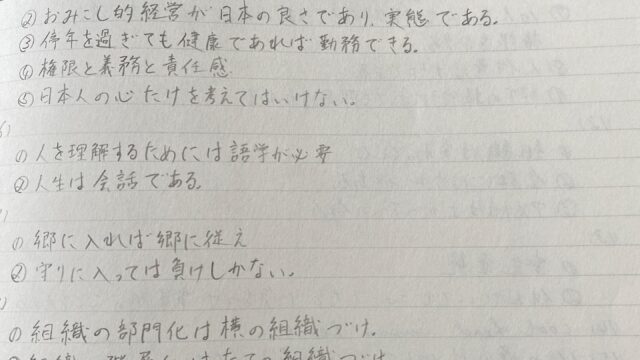 ②おみこし的経営が日本の良さであり、実態である。
③停年を過ぎても健康であれば勤務できる。
④権限と義務と責任感
⑤日本人の心だけを考えてはいけない。
)
①人を理解するためには語学が必要
②人生は会話である。
)
①郷に入れば郷に従え
②守りに入っては負けしかない。
)
①組織の部門化は横の組織づけ。
組織づけ